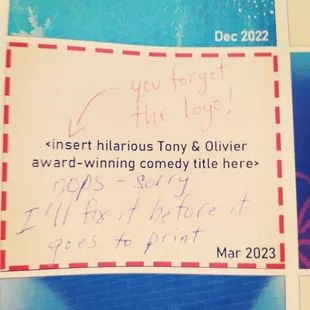 Dec 2022
you forgot
the logo!
<insert hilarious Tony & Olivier
award-winning comedy title here>
oops - sorry
I'll fix it before it
goes to print
Mar 2023